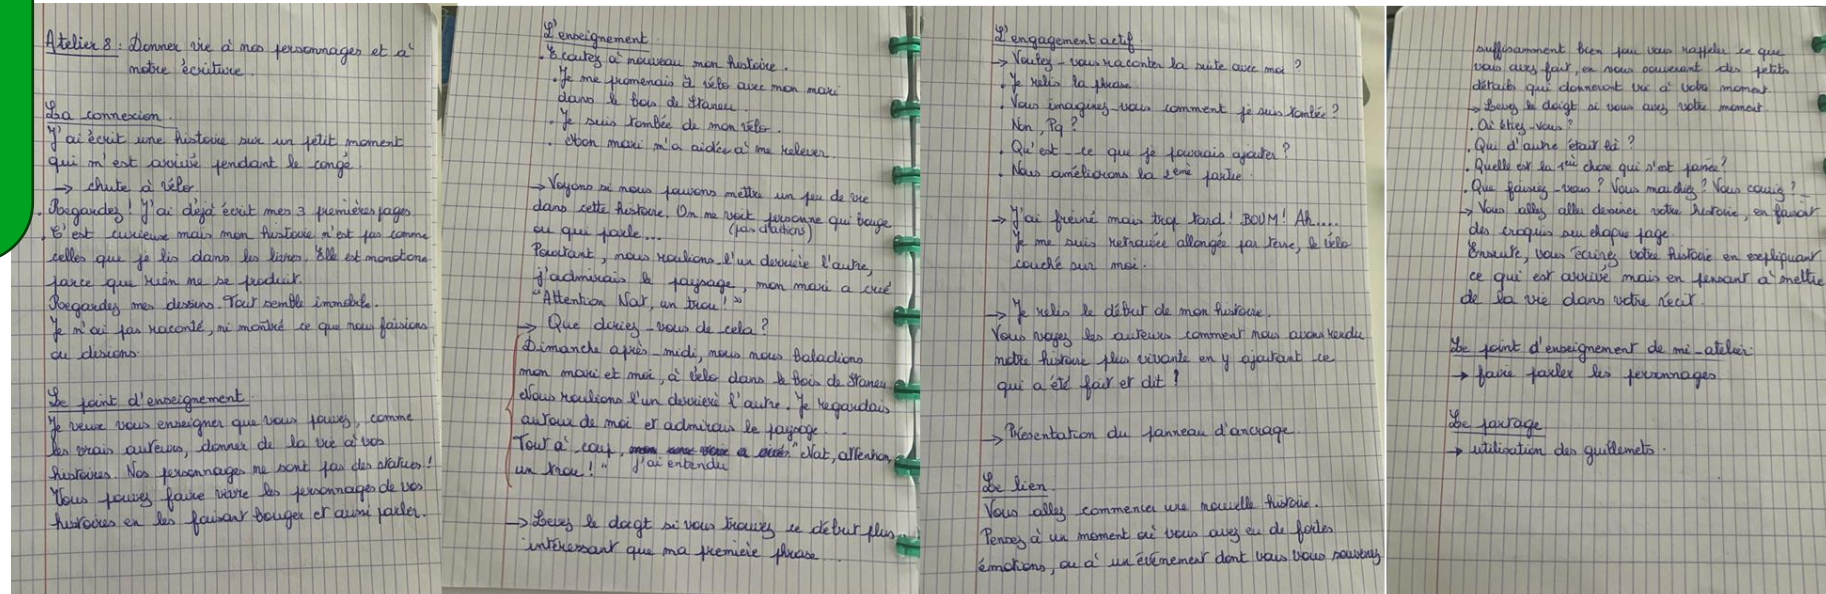 Atelier 8 : Donner vie à nos personnages et à
notre écriture.
La connexion.
J'ai écrit une histoire sur un petit moment
qui m'est arrivé pendant le congé.
→ chute à vélo.
. Regardez ! J'ai déjà écrit mes 3 premières pages
. C'est curieux mais mon histoire n'est pas comme
celles que je lis dans les livres. Elle est monotone
parce que rien ne se produit.
Regardez mes dessins. Tout semble immobile.
Je n'ai pas raconté, ni montré ce que nous faisions
ou disions.
Le point d'enseignement.
Je veux vous enseigner que vous pouvez, comme
les vrais auteurs, donner de la vie à vos
histoires. Nos personnages ne sont pas des statues !
Vous pouvez faire vivre les personnages de vos
histoires en les faisant bouger et aussi parler.
L'enseignement.
. Ecoutez à nouveau mon histoire.
. Je me promenais à vélo avec mon mari
dans le bois de Staneu.
. Je suis tombée de mon vélo.
. Mon mari m'a aidée à me relever.
→ Voyons si nous pouvons mettre un peu de vie
dans cette histoire. On ne voit personne qui bouge
ou qui parle... (pas d'actions)
Pourtant, nous roulions l'un derrière l'autre,
j'admirais le paysage, mon mari a crié
"Attention Nat, un trou ! "
→ Que diriez-vous de cela ?
Dimanche après-midi, nous nous baladions
mon mari et moi, à vélo dans le bois de Staneu
Nous roulions l'un derrière l'autre. Je regardais
autour de moi et admirais le paysage...
Tout à coup, "Nat, attention,
un trou ! " j'ai entendu
→ Levez le doigt si vous trouvez ce début plus
intéressant que ma première phrase...
L'engagement actif.
→ Voulez-vous raconter la suite avec moi ?
. Je relis la phrase.
. Vous imaginez-vous comment je suis tombée ?
Non, Pq ?
. Qu'est-ce que je pourrais ajouter ?
. Nous améliorons la 2ème partie.
→ J'ai freiné mais trop tard ! BOUM ! Ah....
Je me suis retrouvée allongée par terre, le vélo
couché sur moi.
→ Je relis le début de mon histoire.
Vous voyez les auteurs comment nous avons rendu
notre histoire plus vivante en y ajoutant ce
qui a été fait et dit !
→ Présentation du panneau d'ancrage.
Le lien.
Vous allez commencer une nouvelle histoire.
Pensez à un moment où vous avez eu de fortes
émotions, ou à un événement dont vous vous souvenez
suffisamment bien pour vous rappeler ce que
vous avez fait, en vous souvenant des petits
détails qui donneront vie à votre moment.
→ Levez le doigt si vous avez votre moment
. Où étiez-vous ?
. Qui d'autre était là ?
. Quelle est la 1ère chose qui s'est passée ?
. Que faisiez-vous ? Vous marchiez ? Vous couriez ?
→ Vous allez aller dessiner votre histoire, en faisant
des croquis sur chaque page.
Ensuite, vous écrirez votre histoire en expliquant
ce qui est arrivé mais en pensant à mettre
de la vie dans votre récit.
Le point d'enseignement de mi-atelier.
→ faire parler les personnages.
Le partage
→ utilisation des guillemets.